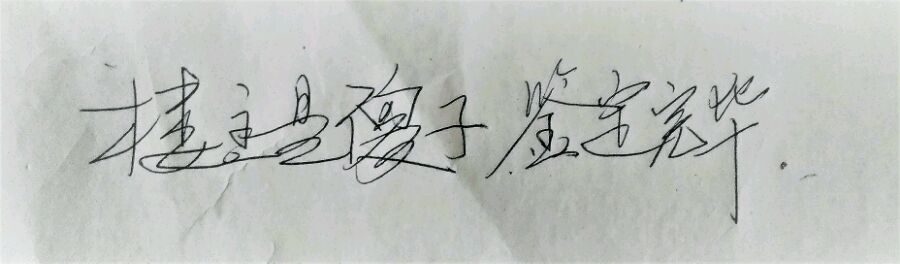 楼主是傻子 鉴定完毕.